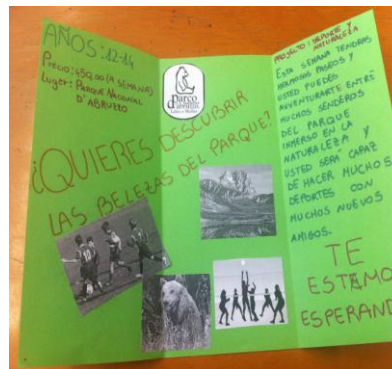 AÑOS: 12-14
PRECIO: 450,00 (A SEMANA)
Lugar: PARQUE NACIONAL
D'ABRUZZO
Parco
¿QUIERES DESCUBRIR
LAS BELEZAS DEL PARQUE?
PROYECTO: DEPORTE Y
NATURALEZA
ESTA SEMANA TENDRÁS
HERMOSOS PASEOS Y
USTED PUEDES
AVVENTURARTE ENTRE
MUCHOS SENDEROS
DEL PARQUE
INMERSO EN LA
NATURALEZA Y
USTED SERÁ CAPAZ
DE HACER MUCHOS
DEPORTES CON
MUCHOS NUEVOS
AMIGOS.
TE
ESTAMO
ESPERAND